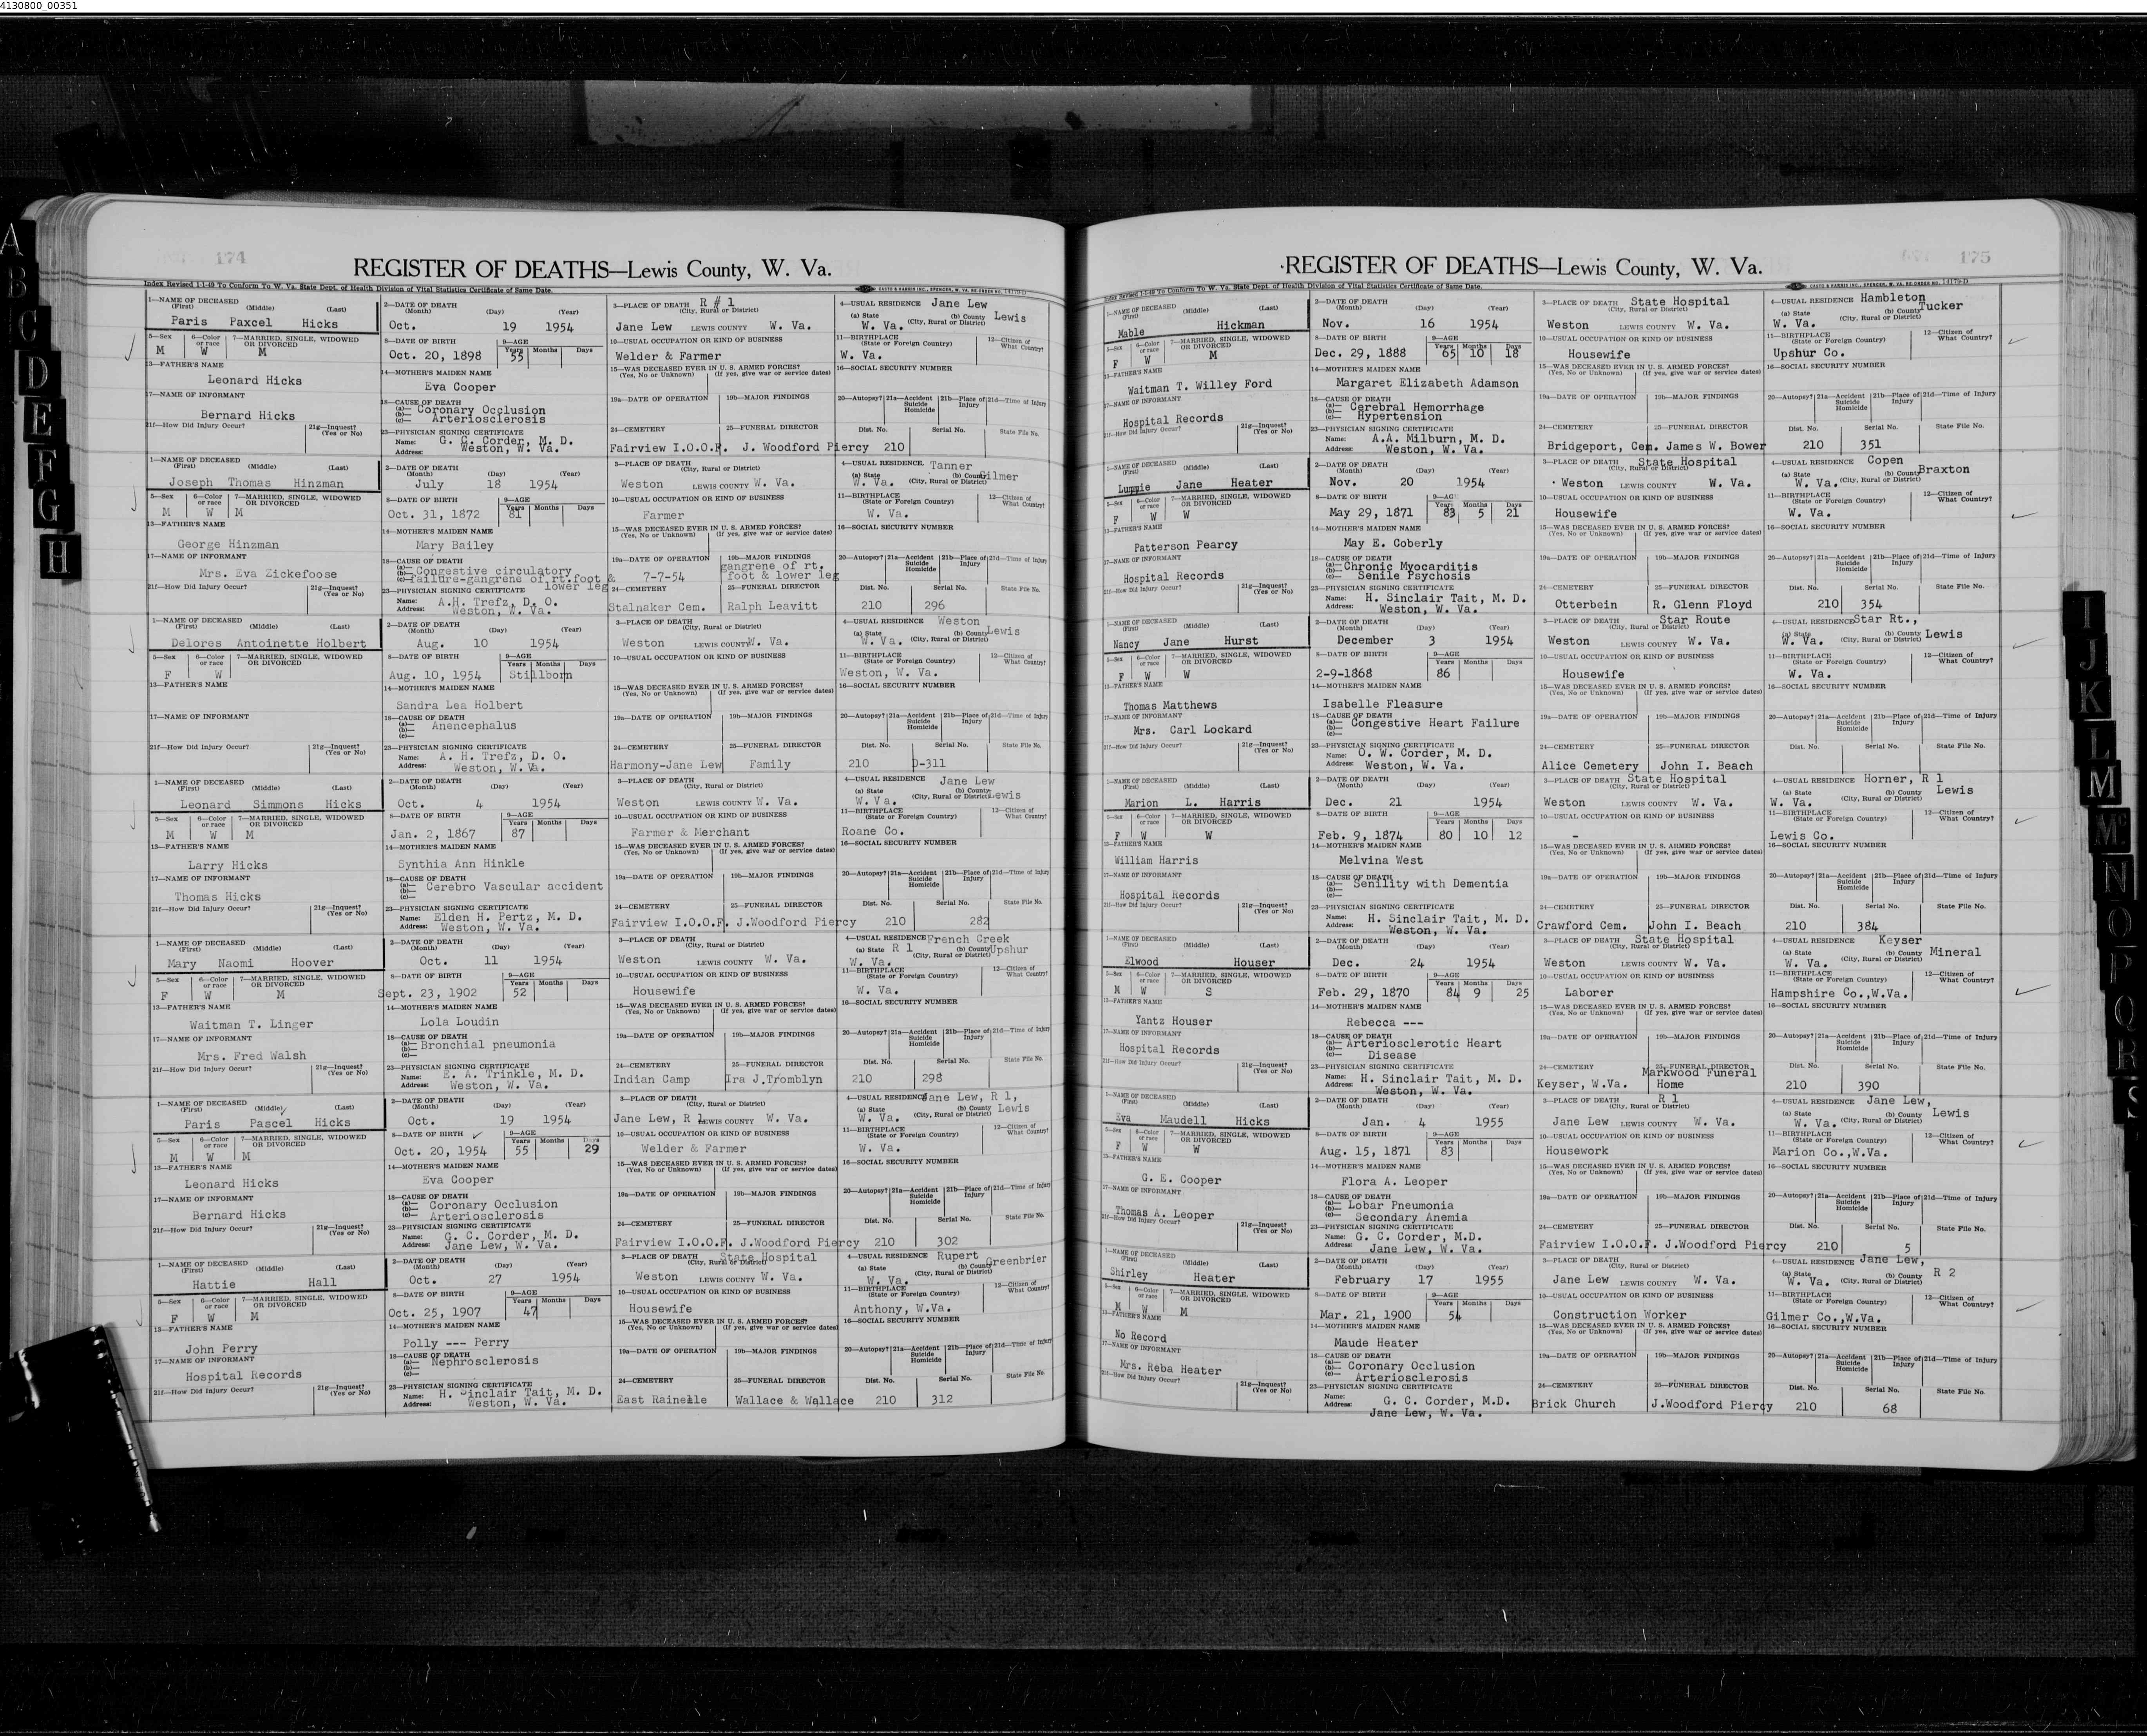 4130800_00351
174
REGISTER OF DEATHS—Lewis County, W. Va.
Index Revised 1-1-49 To Conform To W. Va. State Dept. of Health Division of Vital Statistics Certificate of Same Date.
1—NAME OF DECEASED (First) (Middle) (Last) Paris Paxcel Hicks
2—DATE OF DEATH (Month) (Day) (Year) Oct. 19 1954
3—PLACE OF DEATH (City, Rural or District) R # 1 Jane Lew LEWIS COUNTY W. Va.
4—USUAL RESIDENCE Jane Lew (a) State W. Va. (b) County Lewis (City, Rural or District)
5—Sex M 6—Color or race W 7—MARRIED, SINGLE, WIDOWED OR DIVORCED M
8—DATE OF BIRTH Oct. 20, 1898 9—AGE Years 55 Months Days
10—USUAL OCCUPATION OR KIND OF BUSINESS Welder & Farmer
11—BIRTHPLACE (State or Foreign Country) W. Va. 12—Citizen of What Country?
13—FATHER'S NAME Leonard Hicks
14—MOTHER'S MAIDEN NAME Eva Cooper
15—WAS DECEASED EVER IN U. S. ARMED FORCES? (Yes, No or Unknown) (If yes, give war or service dates)
16—SOCIAL SECURITY NUMBER
17—NAME OF INFORMANT Bernard Hicks
18—CAUSE OF DEATH (a)— (b)— (c)— Coronary Occlusion Arteriosclerosis
19a—DATE OF OPERATION 19b—MAJOR FINDINGS
20—Autopsy? 21a—Accident Suicide Homicide 21b—Place of Injury 21d—Time of Injury
21f—How Did Injury Occur? 21g—Inquest? (Yes or No)
23—PHYSICIAN SIGNING CERTIFICATE Name: G. C. Corder, M. D. Address: Weston, W. Va.
24—CEMETERY Fairview I.O.O.F. 25—FUNERAL DIRECTOR J. Woodford Piercy
Dist. No. 210 Serial No. State File No.
1—NAME OF DECEASED (First) (Middle) (Last) Joseph Thomas Hinzman
2—DATE OF DEATH (Month) (Day) (Year) July 18 1954
3—PLACE OF DEATH (City, Rural or District) Weston LEWIS COUNTY W. Va.
4—USUAL RESIDENCE Tanner (a) State W. Va. (b) County Gilmer (City, Rural or District)
5—Sex M 6—Color or race W 7—MARRIED, SINGLE, WIDOWED OR DIVORCED M
8—DATE OF BIRTH Oct. 31, 1872 9—AGE Years 81 Months Days
10—USUAL OCCUPATION OR KIND OF BUSINESS Farmer
11—BIRTHPLACE (State or Foreign Country) W. Va. 12—Citizen of What Country?
13—FATHER'S NAME George Hinzman
14—MOTHER'S MAIDEN NAME Mary Bailey
15—WAS DECEASED EVER IN U. S. ARMED FORCES? (Yes, No or Unknown) (If yes, give war or service dates)
16—SOCIAL SECURITY NUMBER
17—NAME OF INFORMANT Mrs. Eva Zickefoose
18—CAUSE OF DEATH (a)— (b)— (c)— Congestive circulatory failure-gangrene of rt.foot & lower leg
19a—DATE OF OPERATION 7-7-54 19b—MAJOR FINDINGS gangrene of rt. foot & lower leg
20—Autopsy? 21a—Accident Suicide Homicide 21b—Place of Injury 21d—Time of Injury
21f—How Did Injury Occur? 21g—Inquest? (Yes or No)
23—PHYSICIAN SIGNING CERTIFICATE Name: A.H. Trefz, D. O. Address: Weston, W. Va.
24—CEMETERY Stalnaker Cem. 25—FUNERAL DIRECTOR Ralph Leavitt
Dist. No. 210 Serial No. 296 State File No.
1—NAME OF DECEASED (First) (Middle) (Last) Delores Antoinette Holbert
2—DATE OF DEATH (Month) (Day) (Year) Aug. 10 1954
3—PLACE OF DEATH (City, Rural or District) Weston LEWIS COUNTY W. Va.
4—USUAL RESIDENCE Weston (a) State W. Va. (b) County Lewis (City, Rural or District)
5—Sex F 6—Color or race W 7—MARRIED, SINGLE, WIDOWED OR DIVORCED
8—DATE OF BIRTH Aug. 10, 1954 9—AGE Years Months Days Stillborn
10—USUAL OCCUPATION OR KIND OF BUSINESS
11—BIRTHPLACE (State or Foreign Country) Weston, W. Va. 12—Citizen of What Country?
13—FATHER'S NAME
14—MOTHER'S MAIDEN NAME Sandra Lea Holbert
15—WAS DECEASED EVER IN U. S. ARMED FORCES? (Yes, No or Unknown) (If yes, give war or service dates)
16—SOCIAL SECURITY NUMBER
17—NAME OF INFORMANT
18—CAUSE OF DEATH (a)— (b)— (c)— Anencephalus
19a—DATE OF OPERATION 19b—MAJOR FINDINGS
20—Autopsy? 21a—Accident Suicide Homicide 21b—Place of Injury 21d—Time of Injury
21f—How Did Injury Occur? 21g—Inquest? (Yes or No)
23—PHYSICIAN SIGNING CERTIFICATE Name: A. H. Trefz, D. O. Address: Weston, W. Va.
24—CEMETERY Harmony-Jane Lew 25—FUNERAL DIRECTOR Family
Dist. No. 210 Serial No. D-311 State File No.
1—NAME OF DECEASED (First) (Middle) (Last) Leonard Simmons Hicks
2—DATE OF DEATH (Month) (Day) (Year) Oct. 4 1954
3—PLACE OF DEATH (City, Rural or District) Weston LEWIS COUNTY W. Va.
4—USUAL RESIDENCE Jane Lew (a) State W. Va. (b) County Lewis (City, Rural or District)
5—Sex M 6—Color or race W 7—MARRIED, SINGLE, WIDOWED OR DIVORCED M
8—DATE OF BIRTH Jan. 2, 1867 9—AGE Years 87 Months Days
10—USUAL OCCUPATION OR KIND OF BUSINESS Farmer & Merchant
11—BIRTHPLACE (State or Foreign Country) Roane Co. 12—Citizen of What Country?
13—FATHER'S NAME Larry Hicks
14—MOTHER'S MAIDEN NAME Synthia Ann Hinkle
15—WAS DECEASED EVER IN U. S. ARMED FORCES? (Yes, No or Unknown) (If yes, give war or service dates)
16—SOCIAL SECURITY NUMBER
17—NAME OF INFORMANT Thomas Hicks
18—CAUSE OF DEATH (a)— (b)— (c)— Cerebro Vascular accident
19a—DATE OF OPERATION 19b—MAJOR FINDINGS
20—Autopsy? 21a—Accident Suicide Homicide 21b—Place of Injury 21d—Time of Injury
21f—How Did Injury Occur? 21g—Inquest? (Yes or No)
23—PHYSICIAN SIGNING CERTIFICATE Name: Elden H. Pertz, M. D. Address: Weston, W. Va.
24—CEMETERY Fairview I.O.O.F. 25—FUNERAL DIRECTOR J.Woodford Piercy
Dist. No. 210 Serial No. 282 State File No.
1—NAME OF DECEASED (First) (Middle) (Last) Mary Naomi Hoover
2—DATE OF DEATH (Month) (Day) (Year) Oct. 11 1954
3—PLACE OF DEATH (City, Rural or District) Weston LEWIS COUNTY W. Va.
4—USUAL RESIDENCE French Creek R 1 (a) State W. Va. (b) County Upshur (City, Rural or District)
5—Sex F 6—Color or race W 7—MARRIED, SINGLE, WIDOWED OR DIVORCED M
8—DATE OF BIRTH Sept. 23, 1902 9—AGE Years 52 Months Days
10—USUAL OCCUPATION OR KIND OF BUSINESS Housewife
11—BIRTHPLACE (State or Foreign Country) W. Va. 12—Citizen of What Country?
13—FATHER'S NAME Waitman T. Linger
14—MOTHER'S MAIDEN NAME Lola Loudin
15—WAS DECEASED EVER IN U. S. ARMED FORCES? (Yes, No or Unknown) (If yes, give war or service dates)
16—SOCIAL SECURITY NUMBER
17—NAME OF INFORMANT Mrs. Fred Walsh
18—CAUSE OF DEATH (a)— (b)— (c)— Bronchial pneumonia
19a—DATE OF OPERATION 19b—MAJOR FINDINGS
20—Autopsy? 21a—Accident Suicide Homicide 21b—Place of Injury 21d—Time of Injury
21f—How Did Injury Occur? 21g—Inquest? (Yes or No)
23—PHYSICIAN SIGNING CERTIFICATE Name: E. A. Trinkle, M. D. Address: Weston, W. Va.
24—CEMETERY Indian Camp 25—FUNERAL DIRECTOR Ira J.Tromblyn
Dist. No. 210 Serial No. 298 State File No.
1—NAME OF DECEASED (First) (Middle) (Last) Paris Pascel Hicks
2—DATE OF DEATH (Month) (Day) (Year) Oct. 19 1954
3—PLACE OF DEATH (City, Rural or District) Jane Lew, R 1 LEWIS COUNTY W. Va.
4—USUAL RESIDENCE Jane Lew, R 1, (a) State W. Va. (b) County Lewis (City, Rural or District)
5—Sex M 6—Color or race W 7—MARRIED, SINGLE, WIDOWED OR DIVORCED M
8—DATE OF BIRTH Oct. 20, 1954 9—AGE Years 55 Months Days 29
10—USUAL OCCUPATION OR KIND OF BUSINESS Welder & Farmer
11—BIRTHPLACE (State or Foreign Country) W. Va. 12—Citizen of What Country?
13—FATHER'S NAME Leonard Hicks
14—MOTHER'S MAIDEN NAME Eva Cooper
15—WAS DECEASED EVER IN U. S. ARMED FORCES? (Yes, No or Unknown) (If yes, give war or service dates)
16—SOCIAL SECURITY NUMBER
17—NAME OF INFORMANT Bernard Hicks
18—CAUSE OF DEATH (a)— (b)— (c)— Coronary Occlusion Arteriosclerosis
19a—DATE OF OPERATION 19b—MAJOR FINDINGS
20—Autopsy? 21a—Accident Suicide Homicide 21b—Place of Injury 21d—Time of Injury
21f—How Did Injury Occur? 21g—Inquest? (Yes or No)
23—PHYSICIAN SIGNING CERTIFICATE Name: G. C. Corder, M. D. Address: Jane Lew, W. Va.
24—CEMETERY Fairview I.O.O.F. 25—FUNERAL DIRECTOR J.Woodford Piercy
Dist. No. 210 Serial No. 302 State File No.
1—NAME OF DECEASED (First) (Middle) (Last) Hattie Hall
2—DATE OF DEATH (Month) (Day) (Year) Oct. 27 1954
3—PLACE OF DEATH (City, Rural or District) State Hospital Weston LEWIS COUNTY W. Va.
4—USUAL RESIDENCE Rupert (a) State W. Va. (b) County Greenbrier (City, Rural or District)
5—Sex F 6—Color or race W 7—MARRIED, SINGLE, WIDOWED OR DIVORCED M
8—DATE OF BIRTH Oct. 25, 1907 9—AGE Years 47 Months Days
10—USUAL OCCUPATION OR KIND OF BUSINESS Housewife
11—BIRTHPLACE (State or Foreign Country) Anthony, W.Va. 12—Citizen of What Country?
13—FATHER'S NAME John Perry
14—MOTHER'S MAIDEN NAME Polly --- Perry
15—WAS DECEASED EVER IN U. S. ARMED FORCES? (Yes, No or Unknown) (If yes, give war or service dates)
16—SOCIAL SECURITY NUMBER
17—NAME OF INFORMANT Hospital Records
18—CAUSE OF DEATH (a)— (b)— (c)— Nephrosclerosis
19a—DATE OF OPERATION 19b—MAJOR FINDINGS
20—Autopsy? 21a—Accident Suicide Homicide 21b—Place of Injury 21d—Time of Injury
21f—How Did Injury Occur? 21g—Inquest? (Yes or No)
23—PHYSICIAN SIGNING CERTIFICATE Name: H. Sinclair Tait, M. D. Address: Weston, W. Va.
24—CEMETERY East Rainelle 25—FUNERAL DIRECTOR Wallace & Wallace
Dist. No. 210 Serial No. 312 State File No.
175
REGISTER OF DEATHS—Lewis County, W. Va.
Index Revised 1-1-49 To Conform To W. Va. State Dept. of Health Division of Vital Statistics Certificate of Same Date.
1—NAME OF DECEASED (First) (Middle) (Last) Mable Hickman
2—DATE OF DEATH (Month) (Day) (Year) Nov. 16 1954
3—PLACE OF DEATH (City, Rural or District) State Hospital Weston LEWIS COUNTY W. Va.
4—USUAL RESIDENCE Hambleton (a) State W. Va. (b) County Tucker (City, Rural or District)
5—Sex F 6—Color or race W 7—MARRIED, SINGLE, WIDOWED OR DIVORCED M
8—DATE OF BIRTH Dec. 29, 1888 9—AGE Years 65 Months 10 Days 18
10—USUAL OCCUPATION OR KIND OF BUSINESS Housewife
11—BIRTHPLACE (State or Foreign Country) Upshur Co. 12—Citizen of What Country?
13—FATHER'S NAME Waitman T. Willey Ford
14—MOTHER'S MAIDEN NAME Margaret Elizabeth Adamson
15—WAS DECEASED EVER IN U. S. ARMED FORCES? (Yes, No or Unknown) (If yes, give war or service dates)
16—SOCIAL SECURITY NUMBER
17—NAME OF INFORMANT Hospital Records
18—CAUSE OF DEATH (a)— (b)— (c)— Cerebral Hemorrhage Hypertension
19a—DATE OF OPERATION 19b—MAJOR FINDINGS
20—Autopsy? 21a—Accident Suicide Homicide 21b—Place of Injury 21d—Time of Injury
21f—How Did Injury Occur? 21g—Inquest? (Yes or No)
23—PHYSICIAN SIGNING CERTIFICATE Name: A.A. Milburn, M. D. Address: Weston, W. Va.
24—CEMETERY Bridgeport, Cem. 25—FUNERAL DIRECTOR James W. Bower
Dist. No. 210 Serial No. 351 State File No.
1—NAME OF DECEASED (First) (Middle) (Last) Lummie Jane Heater
2—DATE OF DEATH (Month) (Day) (Year) Nov. 20 1954
3—PLACE OF DEATH (City, Rural or District) State Hospital Weston LEWIS COUNTY W. Va.
4—USUAL RESIDENCE Copen (a) State W. Va. (b) County Braxton (City, Rural or District)
5—Sex F 6—Color or race W 7—MARRIED, SINGLE, WIDOWED OR DIVORCED W
8—DATE OF BIRTH May 29, 1871 9—AGE Years 83 Months 5 Days 21
10—USUAL OCCUPATION OR KIND OF BUSINESS Housewife
11—BIRTHPLACE (State or Foreign Country) W. Va. 12—Citizen of What Country?
13—FATHER'S NAME Patterson Pearcy
14—MOTHER'S MAIDEN NAME May E. Coberly
15—WAS DECEASED EVER IN U. S. ARMED FORCES? (Yes, No or Unknown) (If yes, give war or service dates)
16—SOCIAL SECURITY NUMBER
17—NAME OF INFORMANT Hospital Records
18—CAUSE OF DEATH (a)— (b)— (c)— Chronic Myocarditis Senile Psychosis
19a—DATE OF OPERATION 19b—MAJOR FINDINGS
20—Autopsy? 21a—Accident Suicide Homicide 21b—Place of Injury 21d—Time of Injury
21f—How Did Injury Occur? 21g—Inquest? (Yes or No)
23—PHYSICIAN SIGNING CERTIFICATE Name: H. Sinclair Tait, M. D. Address: Weston, W. Va.
24—CEMETERY Otterbein 25—FUNERAL DIRECTOR R. Glenn Floyd
Dist. No. 210 Serial No. 354 State File No.
1—NAME OF DECEASED (First) (Middle) (Last) Nancy Jane Hurst
2—DATE OF DEATH (Month) (Day) (Year) December 3 1954
3—PLACE OF DEATH (City, Rural or District) Star Route Weston LEWIS COUNTY W. Va.
4—USUAL RESIDENCE Star Rt., (a) State W. Va. (b) County Lewis (City, Rural or District)
5—Sex F 6—Color or race W 7—MARRIED, SINGLE, WIDOWED OR DIVORCED W
8—DATE OF BIRTH 2-9-1868 9—AGE Years 86 Months Days
10—USUAL OCCUPATION OR KIND OF BUSINESS Housewife
11—BIRTHPLACE (State or Foreign Country) W. Va. 12—Citizen of What Country?
13—FATHER'S NAME Thomas Matthews
14—MOTHER'S MAIDEN NAME Isabelle Fleasure
15—WAS DECEASED EVER IN U. S. ARMED FORCES? (Yes, No or Unknown) (If yes, give war or service dates)
16—SOCIAL SECURITY NUMBER
17—NAME OF INFORMANT Mrs. Carl Lockard
18—CAUSE OF DEATH (a)— (b)— (c)— Congestive Heart Failure
19a—DATE OF OPERATION 19b—MAJOR FINDINGS
20—Autopsy? 21a—Accident Suicide Homicide 21b—Place of Injury 21d—Time of Injury
21f—How Did Injury Occur? 21g—Inquest? (Yes or No)
23—PHYSICIAN SIGNING CERTIFICATE Name: O. W. Corder, M. D. Address: Weston, W. Va.
24—CEMETERY Alice Cemetery 25—FUNERAL DIRECTOR John I. Beach
Dist. No. Serial No. State File No.
1—NAME OF DECEASED (First) (Middle) (Last) Marion L. Harris
2—DATE OF DEATH (Month) (Day) (Year) Dec. 21 1954
3—PLACE OF DEATH (City, Rural or District) State Hospital Weston LEWIS COUNTY W. Va.
4—USUAL RESIDENCE Horner, R 1 (a) State W. Va. (b) County Lewis (City, Rural or District)
5—Sex F 6—Color or race W 7—MARRIED, SINGLE, WIDOWED OR DIVORCED W
8—DATE OF BIRTH Feb. 9, 1874 9—AGE Years 80 Months 10 Days 12
10—USUAL OCCUPATION OR KIND OF BUSINESS -
11—BIRTHPLACE (State or Foreign Country) Lewis Co. 12—Citizen of What Country?
13—FATHER'S NAME William Harris
14—MOTHER'S MAIDEN NAME Melvina West
15—WAS DECEASED EVER IN U. S. ARMED FORCES? (Yes, No or Unknown) (If yes, give war or service dates)
16—SOCIAL SECURITY NUMBER
17—NAME OF INFORMANT Hospital Records
18—CAUSE OF DEATH (a)— (b)— (c)— Senility with Dementia
19a—DATE OF OPERATION 19b—MAJOR FINDINGS
20—Autopsy? 21a—Accident Suicide Homicide 21b—Place of Injury 21d—Time of Injury
21f—How Did Injury Occur? 21g—Inquest? (Yes or No)
23—PHYSICIAN SIGNING CERTIFICATE Name: H. Sinclair Tait, M. D. Address: Weston, W. Va.
24—CEMETERY Crawford Cem. 25—FUNERAL DIRECTOR John I. Beach
Dist. No. 210 Serial No. 384 State File No.
1—NAME OF DECEASED (First) (Middle) (Last) Elwood Houser
2—DATE OF DEATH (Month) (Day) (Year) Dec. 24 1954
3—PLACE OF DEATH (City, Rural or District) State Hospital Weston LEWIS COUNTY W. Va.
4—USUAL RESIDENCE Keyser (a) State W. Va. (b) County Mineral (City, Rural or District)
5—Sex M 6—Color or race W 7—MARRIED, SINGLE, WIDOWED OR DIVORCED S
8—DATE OF BIRTH Feb. 29, 1870 9—AGE Years 84 Months 9 Days 25
10—USUAL OCCUPATION OR KIND OF BUSINESS Laborer
11—BIRTHPLACE (State or Foreign Country) Hampshire Co.,W.Va. 12—Citizen of What Country?
13—FATHER'S NAME Yantz Houser
14—MOTHER'S MAIDEN NAME Rebecca ---
15—WAS DECEASED EVER IN U. S. ARMED FORCES? (Yes, No or Unknown) (If yes, give war or service dates)
16—SOCIAL SECURITY NUMBER
17—NAME OF INFORMANT Hospital Records
18—CAUSE OF DEATH (a)— (b)— (c)— Arteriosclerotic Heart Disease
19a—DATE OF OPERATION 19b—MAJOR FINDINGS
20—Autopsy? 21a—Accident Suicide Homicide 21b—Place of Injury 21d—Time of Injury
21f—How Did Injury Occur? 21g—Inquest? (Yes or No)
23—PHYSICIAN SIGNING CERTIFICATE Name: H. Sinclair Tait, M. D. Address: Weston, W. Va.
24—CEMETERY Keyser, W.Va. 25—FUNERAL DIRECTOR Markwood Funeral Home
Dist. No. 210 Serial No. 390 State File No.
1—NAME OF DECEASED (First) (Middle) (Last) Eva Maudell Hicks
2—DATE OF DEATH (Month) (Day) (Year) Jan. 4 1955
3—PLACE OF DEATH (City, Rural or District) R 1 Jane Lew LEWIS COUNTY W. Va.
4—USUAL RESIDENCE Jane Lew, (a) State W. Va. (b) County Lewis (City, Rural or District)
5—Sex F 6—Color or race W 7—MARRIED, SINGLE, WIDOWED OR DIVORCED W
8—DATE OF BIRTH Aug. 15, 1871 9—AGE Years 83 Months Days
10—USUAL OCCUPATION OR KIND OF BUSINESS Housework
11—BIRTHPLACE (State or Foreign Country) Marion Co.,W.Va. 12—Citizen of What Country?
13—FATHER'S NAME G. E. Cooper
14—MOTHER'S MAIDEN NAME Flora A. Leoper
15—WAS DECEASED EVER IN U. S. ARMED FORCES? (Yes, No or Unknown) (If yes, give war or service dates)
16—SOCIAL SECURITY NUMBER
17—NAME OF INFORMANT Thomas A. Leoper
18—CAUSE OF DEATH (a)— (b)— (c)— Lobar Pneumonia Secondary Anemia
19a—DATE OF OPERATION 19b—MAJOR FINDINGS
20—Autopsy? 21a—Accident Suicide Homicide 21b—Place of Injury 21d—Time of Injury
21f—How Did Injury Occur? 21g—Inquest? (Yes or No)
23—PHYSICIAN SIGNING CERTIFICATE Name: G. C. Corder, M.D. Address: Jane Lew, W. Va.
24—CEMETERY Fairview I.O.O.F. 25—FUNERAL DIRECTOR J.Woodford Piercy
Dist. No. 210 Serial No. 5 State File No.
1—NAME OF DECEASED (First) (Middle) (Last) Shirley Heater
2—DATE OF DEATH (Month) (Day) (Year) February 17 1955
3—PLACE OF DEATH (City, Rural or District) Jane Lew LEWIS COUNTY W. Va.
4—USUAL RESIDENCE Jane Lew, R 2 (a) State W. Va. (b) County (City, Rural or District)
5—Sex M 6—Color or race W 7—MARRIED, SINGLE, WIDOWED OR DIVORCED M
8—DATE OF BIRTH Mar. 21, 1900 9—AGE Years 54 Months Days
10—USUAL OCCUPATION OR KIND OF BUSINESS Construction Worker
11—BIRTHPLACE (State or Foreign Country) Gilmer Co.,W.Va. 12—Citizen of What Country?
13—FATHER'S NAME No Record
14—MOTHER'S MAIDEN NAME Maude Heater
15—WAS DECEASED EVER IN U. S. ARMED FORCES? (Yes, No or Unknown) (If yes, give war or service dates)
16—SOCIAL SECURITY NUMBER
17—NAME OF INFORMANT Mrs. Reba Heater
18—CAUSE OF DEATH (a)— (b)— (c)— Coronary Occlusion Arteriosclerosis
19a—DATE OF OPERATION 19b—MAJOR FINDINGS
20—Autopsy? 21a—Accident Suicide Homicide 21b—Place of Injury 21d—Time of Injury
21f—How Did Injury Occur? 21g—Inquest? (Yes or No)
23—PHYSICIAN SIGNING CERTIFICATE Name: G. C. Corder, M.D. Address: Jane Lew, W. Va.
24—CEMETERY Brick Church 25—FUNERAL DIRECTOR J.Woodford Piercy
Dist. No. 210 Serial No. 68 State File No.
A
B
C
D
E
F
G
H
I
J
K
L
M
Mc
N
O
P
Q
R
S